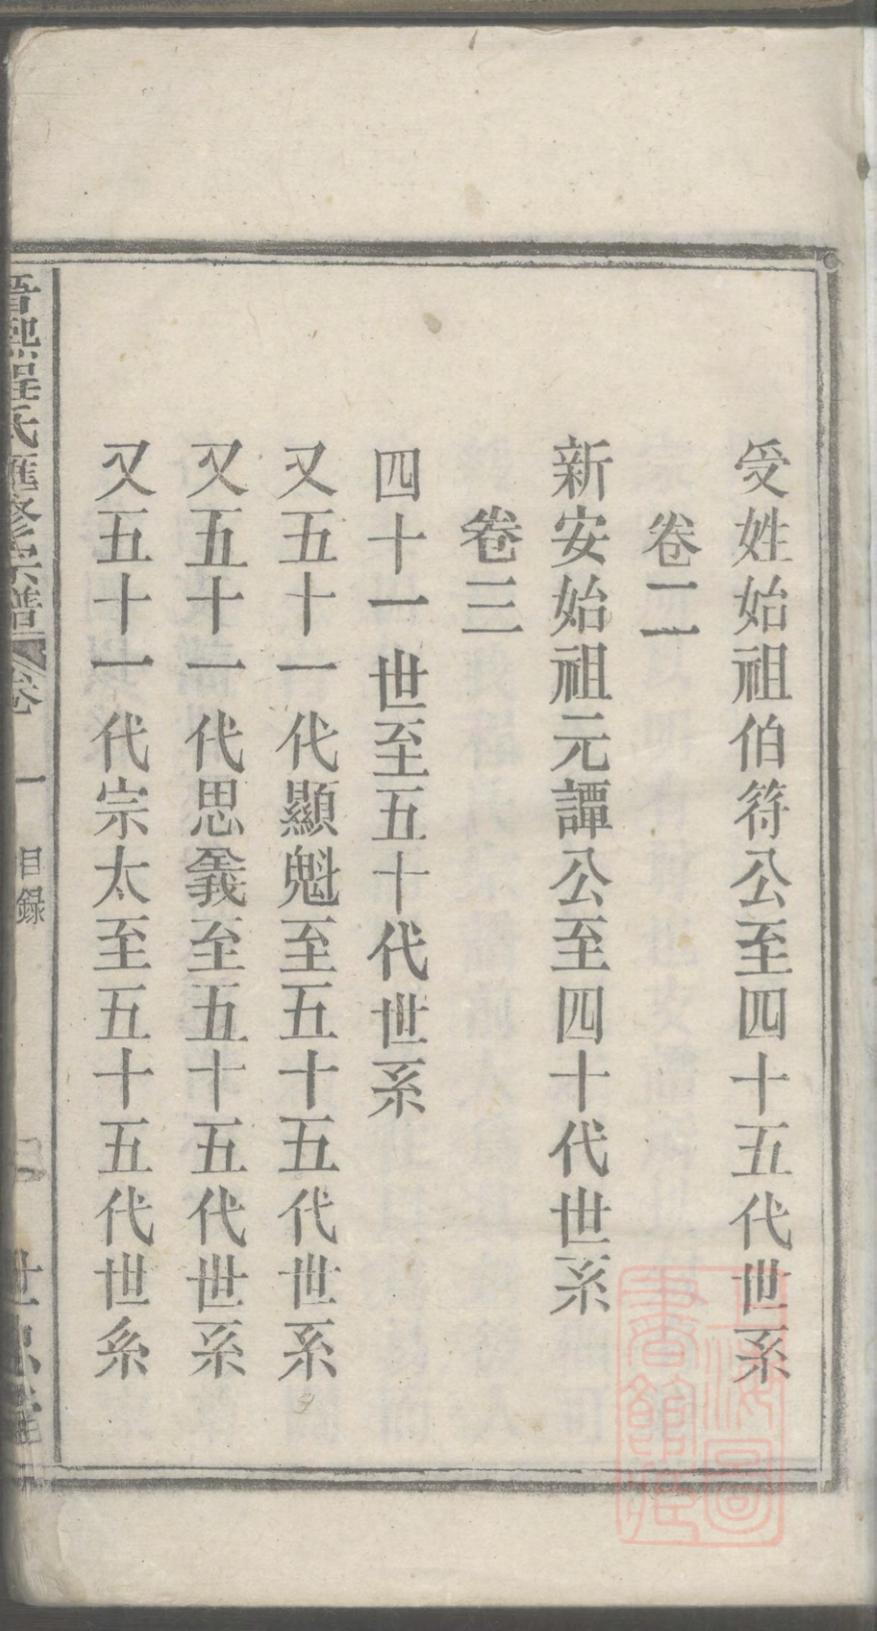 受姓始祖伯符公至四十五代世系
卷二
新安始祖元譚公至四十代世系
卷三
四十一世至五十代世系
又五十一代顯魁至五十五代世系
又五十一代思義至五十五代世系
又五十一代宗太至五十五代世系
晋熙程氏匯修宗譜 卷一 目錄 世忠堂
上海圖書館藏